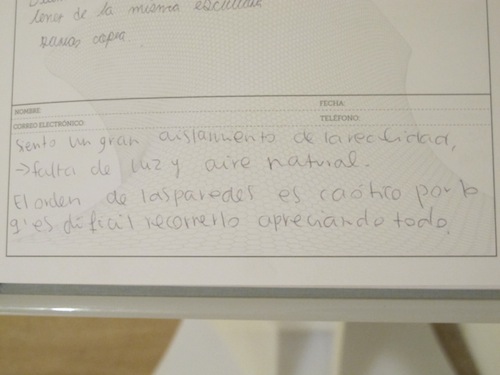 tener de la misma
varias copia.
NOMBRE:
FECHA:
CORREO ELECTRÓNICO:
TELÉFONO:
Sento un gran aislamiento de la realidad,
→falta de luz y aire natural.
El orden de las paredes es caótico por lo
q' es difícil recorrerlo apreciando todo.